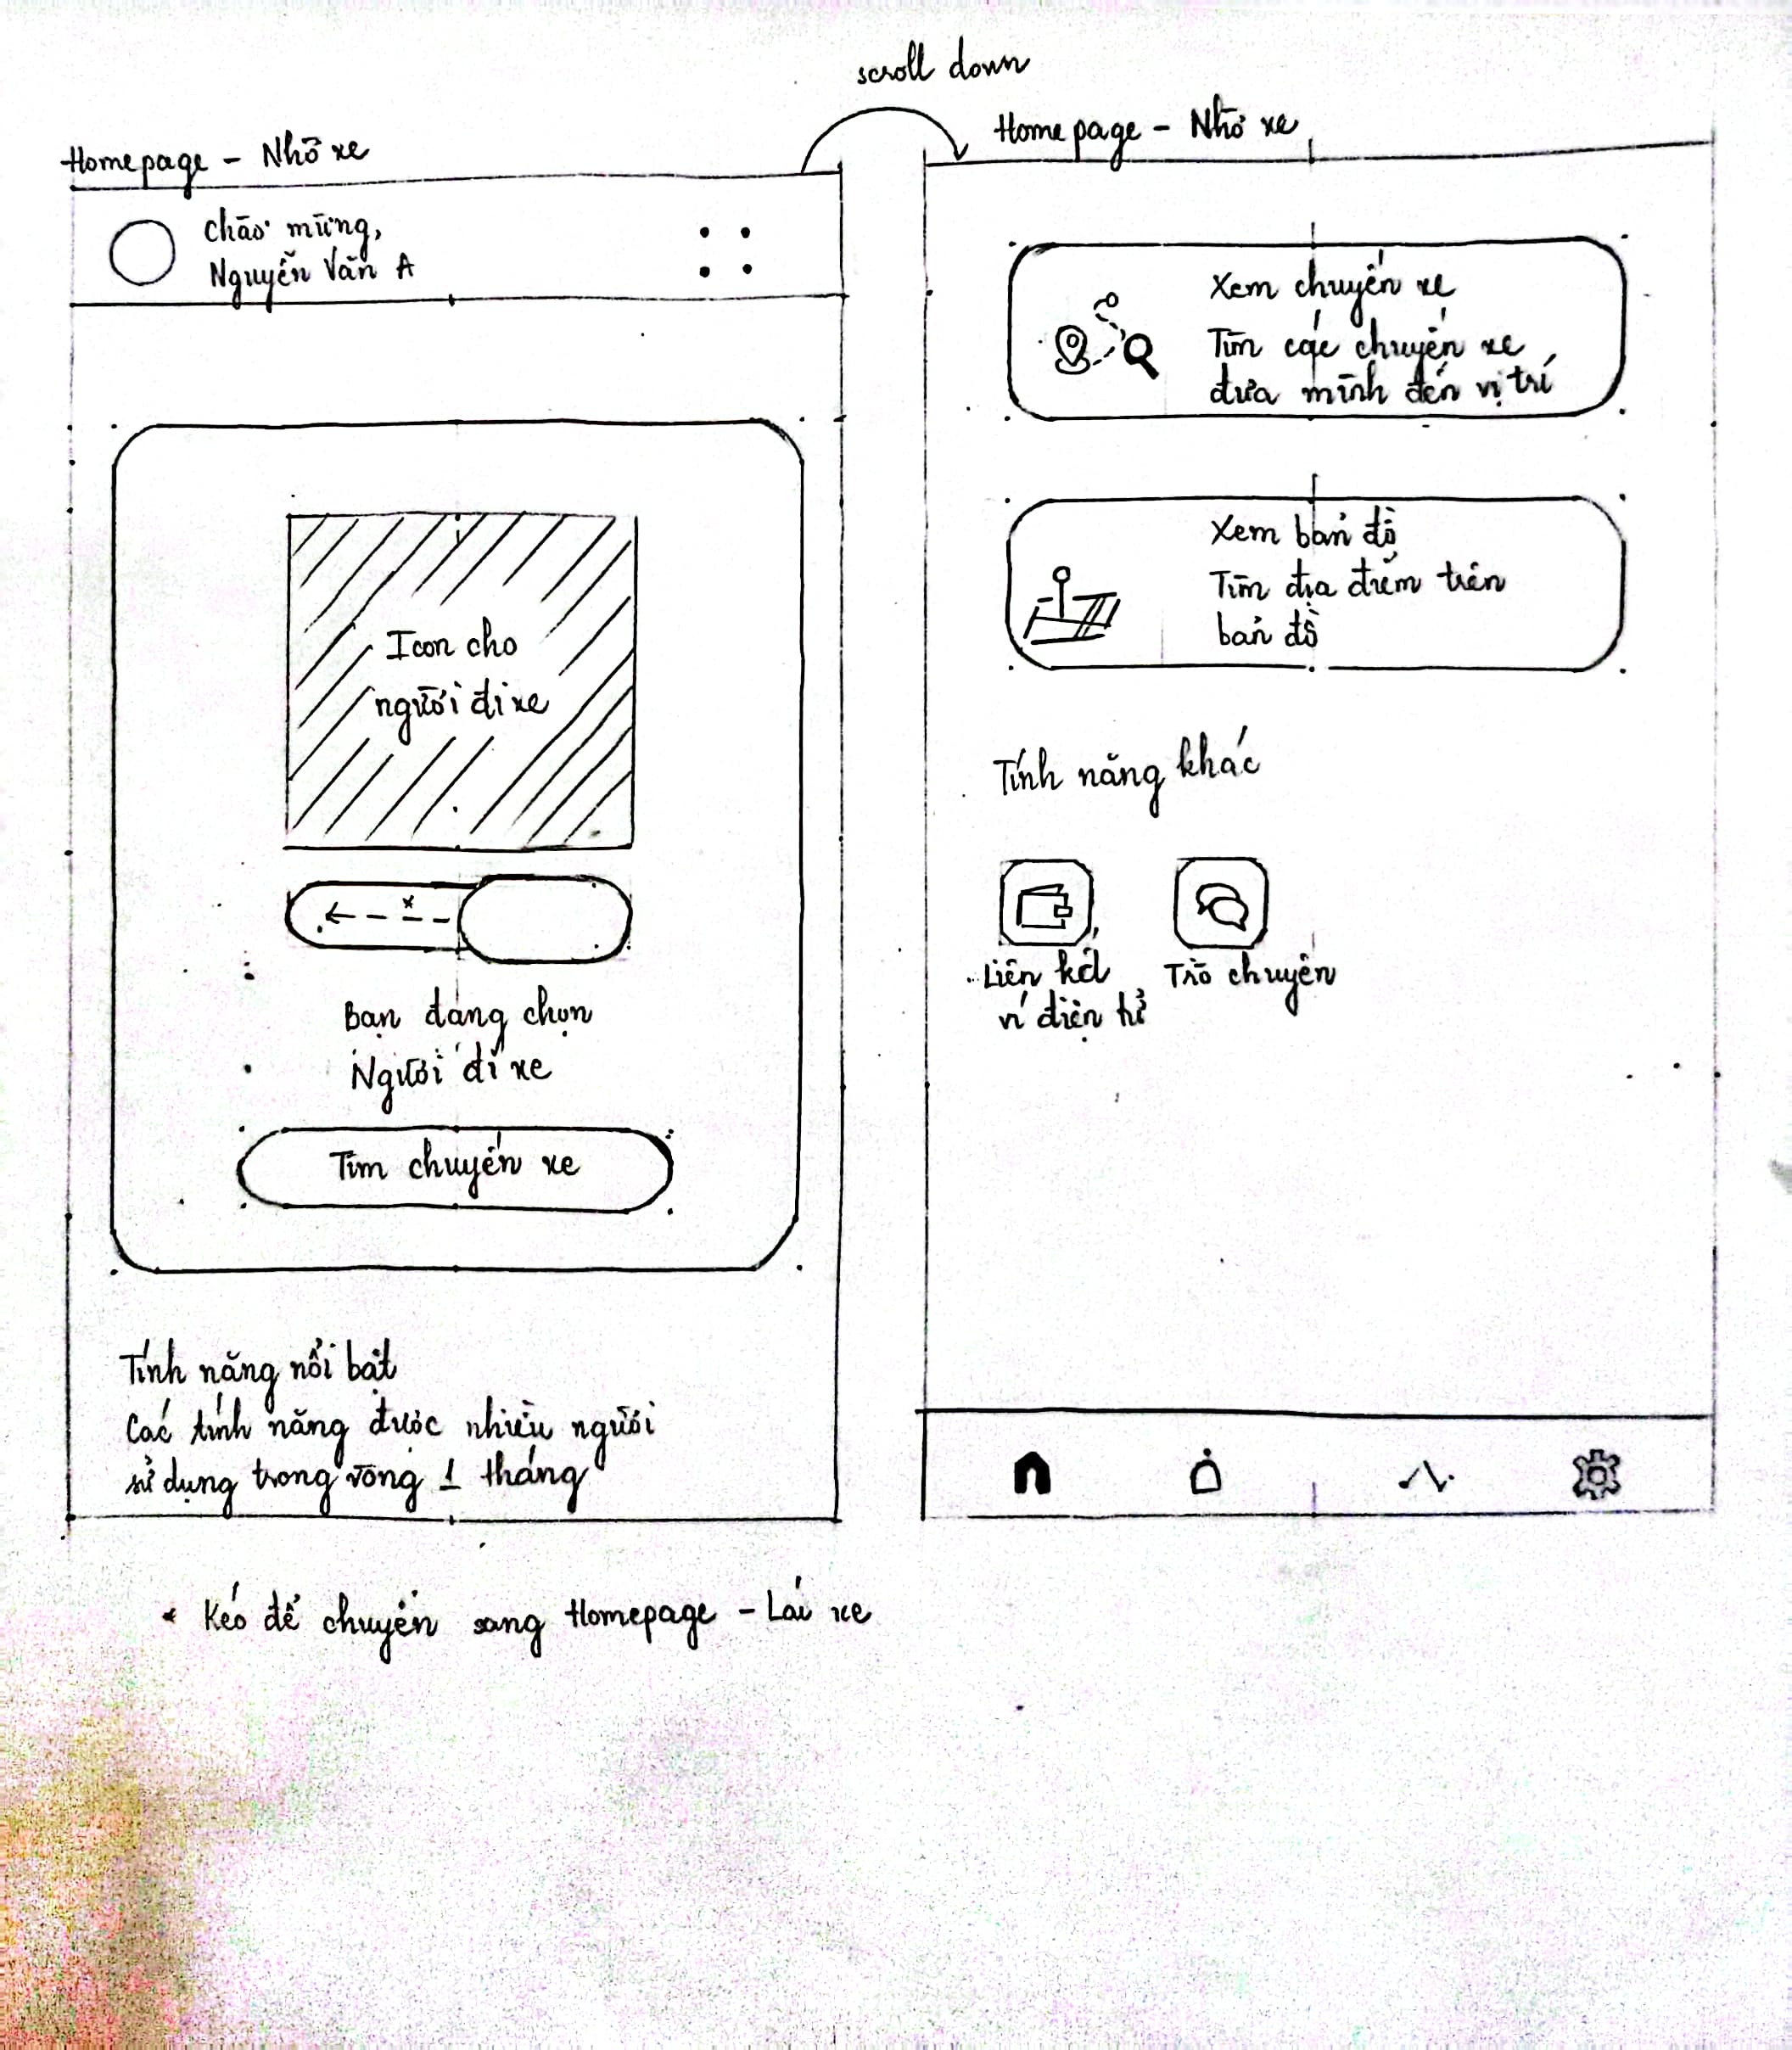 scroll down
Homepage - Nhờ xe
Chào mừng,
Nguyễn Văn A
Icon cho
người đi xe
*
Bạn đang chọn
Người đi xe
Tìm chuyến xe
Tính năng nổi bật
Các tính năng được nhiều người
sử dụng trong vòng 1 tháng
* Kéo để chuyển sang Homepage - Lái xe
Homepage - Nhờ xe
Xem chuyến xe
Tìm các chuyến xe
đưa mình đến vị trí
Xem bản đồ
Tìm địa điểm trên
bản đồ
Tính năng khác
Liên kết
ví điện tử
Trò chuyện